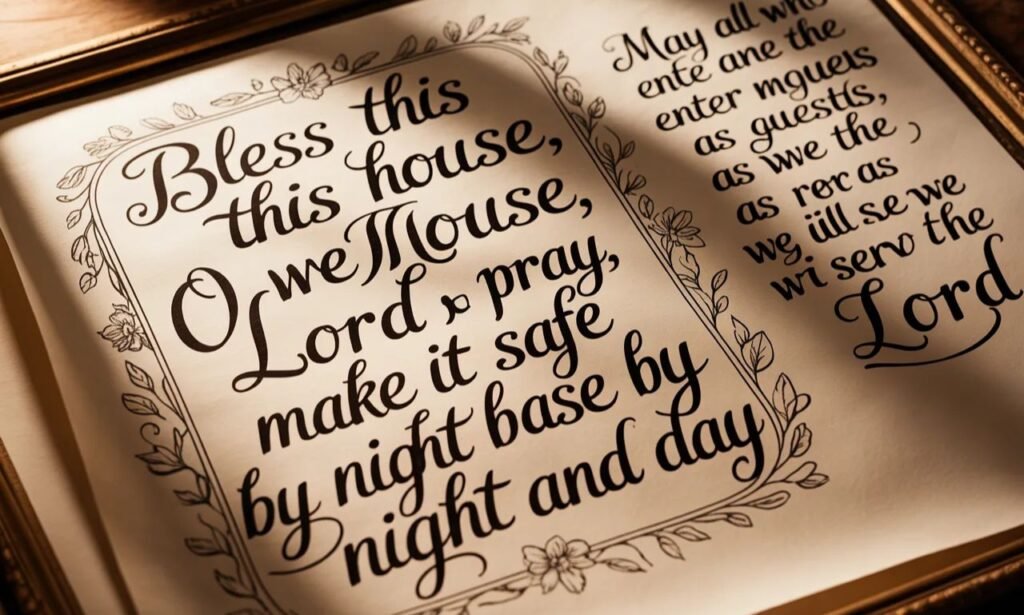 Bless this
this house,
O we Mouse,
Lord pray,
make it safe
by night base by
night and day
May all who
ente ane the
enter mgueis
as guestls,
as wwe the ,
as as
we, iill se we
wi servo the
Lord